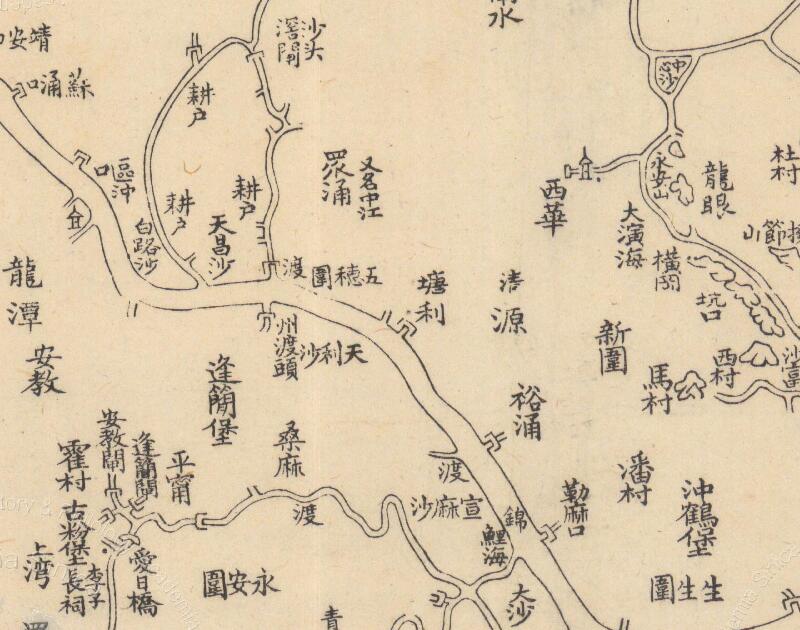 靖安
蘇涌口
沙头
滘閘
耕户
區沖口
白路沙
耕户
耕户
天昌沙
眾涌
又名中江
中心沙
永安山
西華
龍眼
杜村
大濱海
橫閘
坑口
節山
龍潭
安教
渡
五穗圍
塘利
清源
新圍
西村
馬村
州渡頭
天利沙
逢簡堡
桑麻
裕涌
安教閘
逢簡閘
平甯
霍村
古粉堡
長祠
李子
愛日橋
上湾
渡
渡
宣麻沙
錦鯉海
勒麻口
潘村
沖鶴堡
永安圍
生生圍
大沙
青